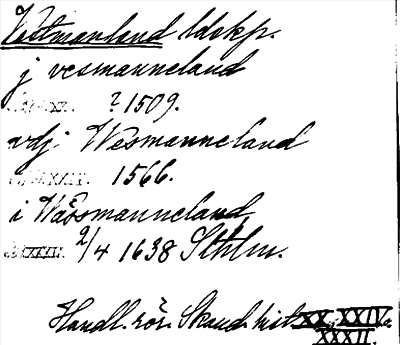 Vestmanland ldskp.
j vesmanneland
XX. ? 1509.
vdj. Wesmanneland
XXIV. 1566.
i Wässmanneland
XXXII. 2/4 1638 Sthlm.
Handl. rör. Skand. hist. XX, XXIV o.
XXXII.